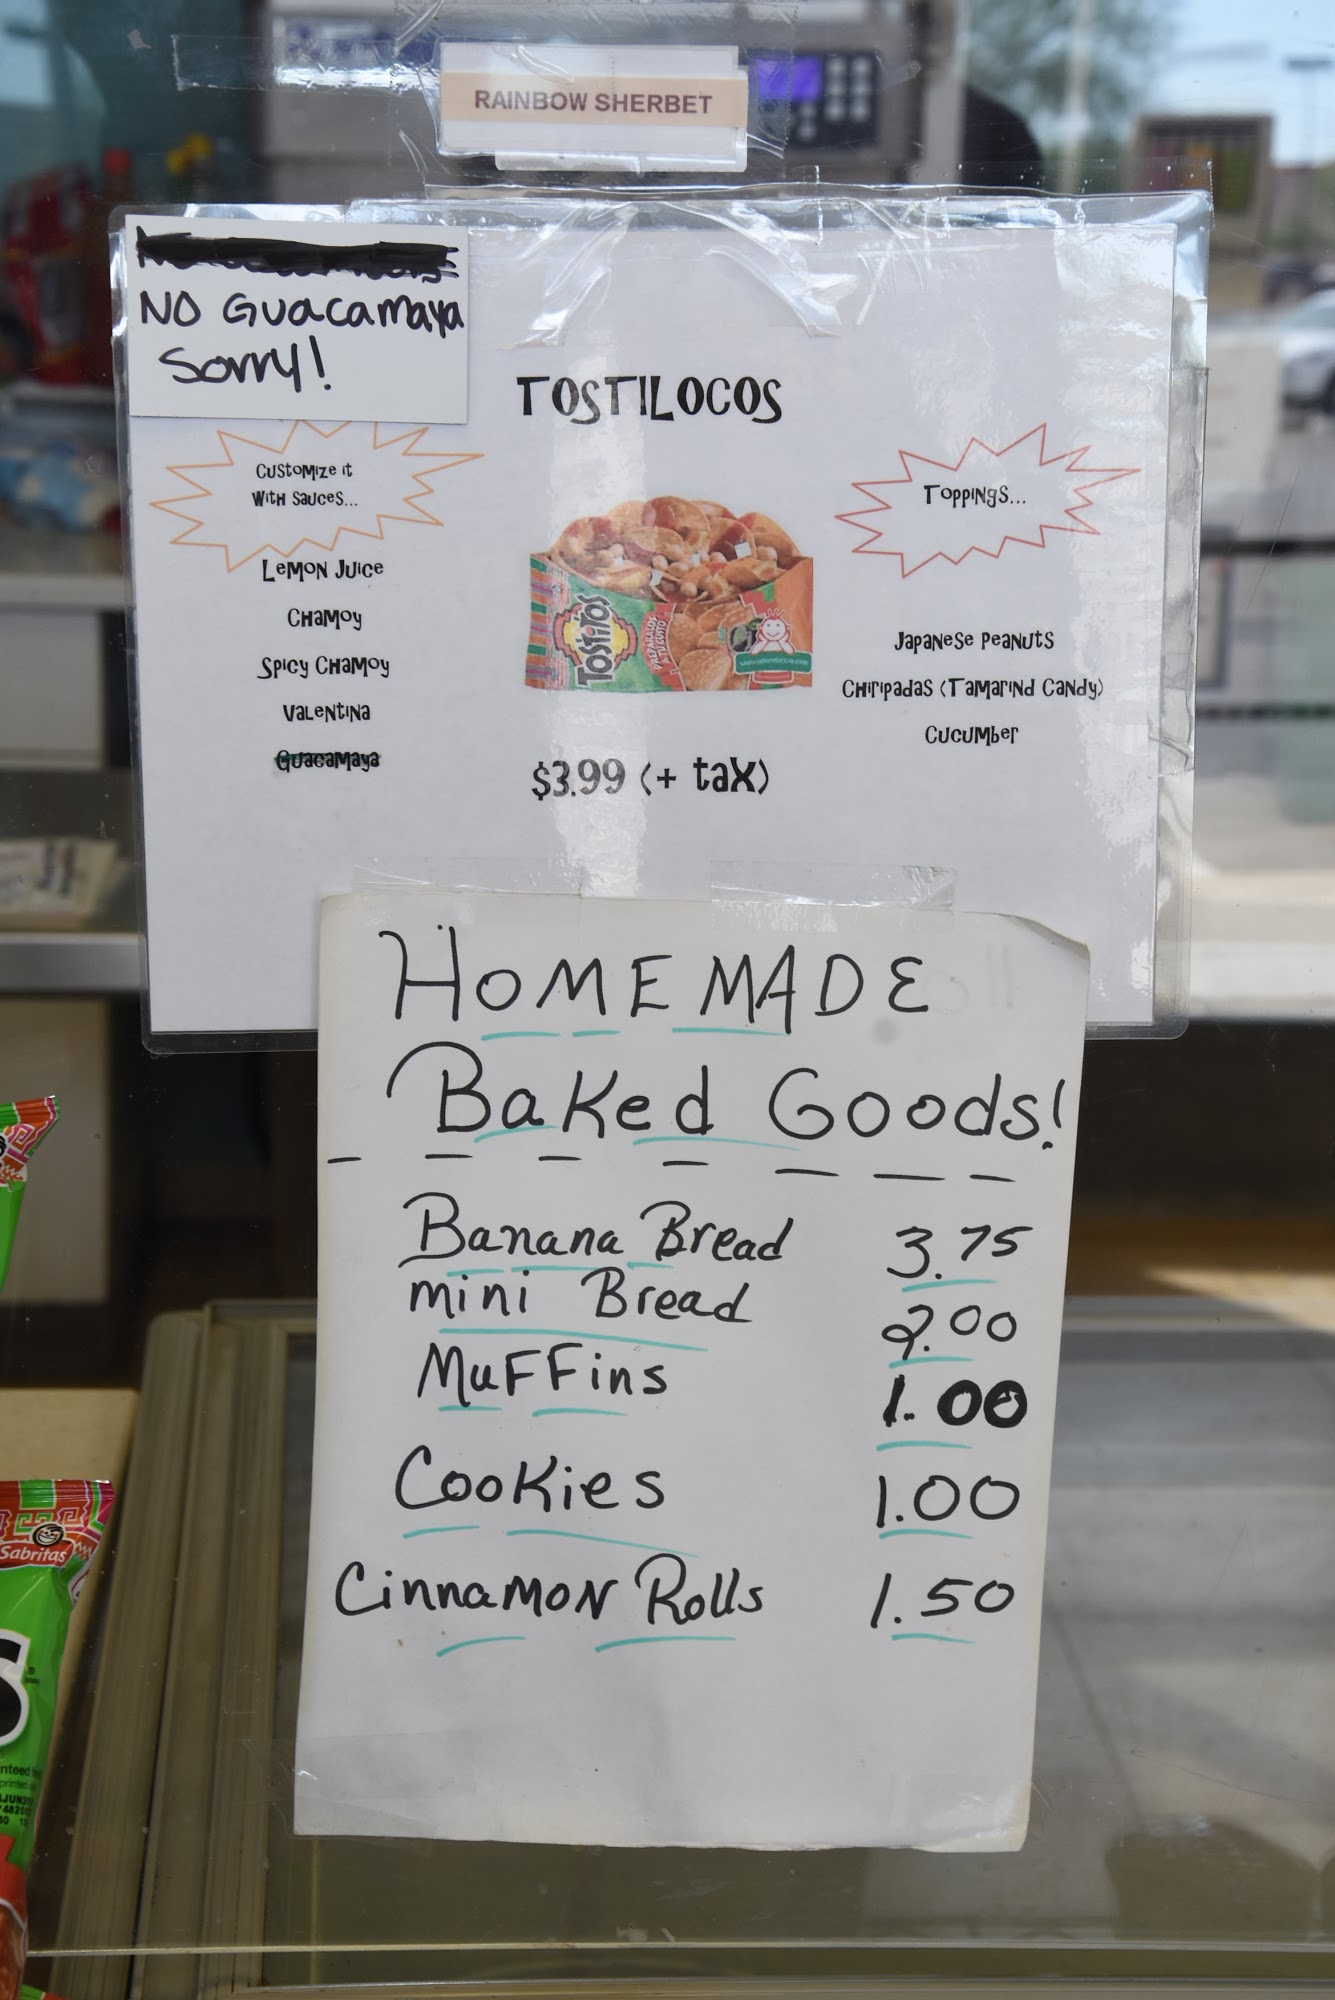 RAINBOW SHERBET
NO GUacamaya
Sorry!
TOSTILOCOS
CUSTOMIZE IT
WITH SAUCES...
LEMON JUICE
CHAMOY
SPICY CHAMOY
VALENTINA
GUACAMAYA
TOSTITOS
PREPÁRALOS
A TU GUSTO
$3.99 (+ TAX)
TOPPINGS...
JAPANESE PEANUTS
CHIRIPADAS (TAMARIND CANDY)
CUCUMBER
HOMEMADE
Baked Goods!
Banana Bread 3.75
mini Bread 2.00
MuFFins 1.00
Cookies 1.00
CinnaMoN Rolls 1.50
Sabritas